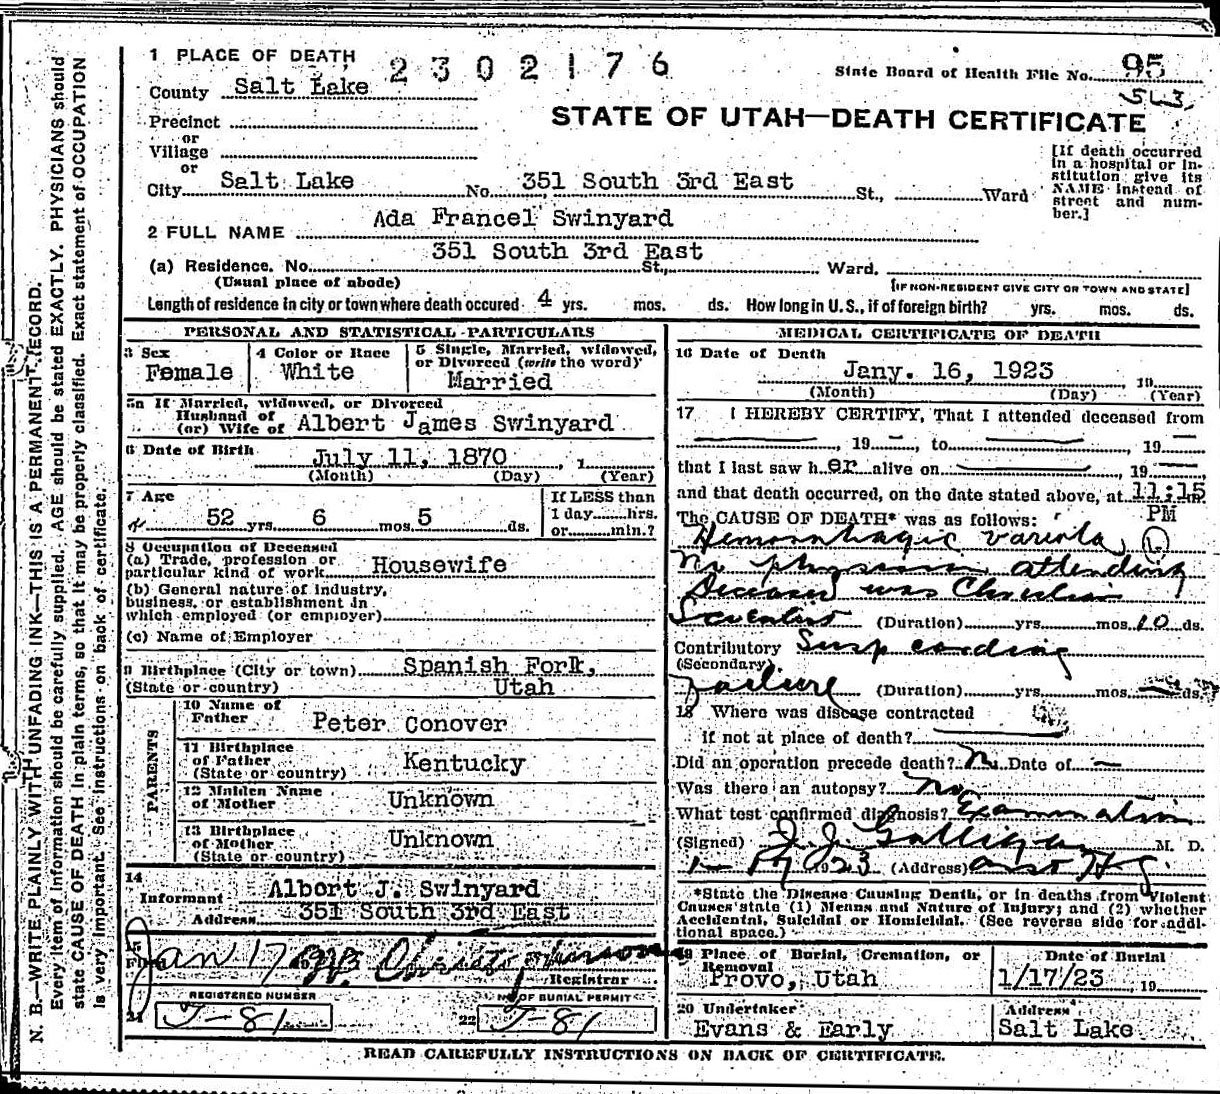 1 PLACE OF DEATH 2302176
State Board of Health File No. 95
County Salt Lake
STATE OF UTAH—DEATH CERTIFICATE
Precinct
or
Village
or
City Salt Lake No. 351 South 3rd East St., Ward
[If death occurred
in a hospital or in-
stitution give its
NAME instead of
street and num-
ber.]
2 FULL NAME Ada Francel Swinyard
351 South 3rd East
(a) Residence. No. St., Ward.
(Usual place of abode) [IF NON-RESIDENT GIVE CITY OR TOWN AND STATE]
Length of residence in city or town where death occured 4 yrs. mos. ds. How long in U.S., if of foreign birth? yrs. mos. ds.
PERSONAL AND STATISTICAL PARTICULARS
3 Sex
Female
4 Color or Race
White
5 Single, Married, widowed,
or Divorced (write the word)
Married
5a If Married, widowed, or Divorced
Husband of
(or) Wife of Albert James Swinyard
6 Date of Birth July 11, 1870 , 1
(Month) (Day) (Year)
7 Age
52 yrs. 6 mos. 5 ds.
If LESS than
1 day hrs.
or min.?
8 Occupation of Deceased
(a) Trade, profession or
particular kind of work Housewife
(b) General nature of industry,
business, or establishment in
which employed (or employer)
(c) Name of Employer
9 Birthplace (City or town) Spanish Fork,
(State or country) Utah
PARENTS
10 Name of
Father Peter Conover
11 Birthplace
of Father
(State or country) Kentucky
12 Maiden Name
of Mother Unknown
13 Birthplace
of Mother
(State or country) Unknown
14
Informant Albert J. Swinyard
Address 351 South 3rd East
15
Filed Jan 17 1923
Registrar
REGISTERED NUMBER
21 J-81
NO OF BURIAL PERMIT
22 J-81
MEDICAL CERTIFICATE OF DEATH
16 Date of Death
Jany. 16, 1923 , 19
(Month) (Day) (Year)
17 I HEREBY CERTIFY, That I attended deceased from
— , 19 — , to — 19 —
that I last saw her alive on — , 19 —
and that death occurred, on the date stated above, at 11:15 m.
PM
The CAUSE OF DEATH* was as follows:
Hemorrhagic variola
No physician attending
Deceased was Christian
Scientist (Duration) yrs. mos. 10 ds.
Contributory
(Secondary)
failure (Duration) yrs. mos. ds.
18 Where was disease contracted
if not at place of death?
Did an operation precede death? No Date of —
Was there an autopsy? No
What test confirmed diagnosis? Examination
(Signed) M. D.
(Address)
*State the Disease Causing Death, or in deaths from Violent
Causes state (1) Means and Nature of Injury; and (2) whether
Accidental, Suicidal or Homicidal. (See reverse side for addi-
tional space.)
19 Place of Burial, Cremation, or
Removal
Provo, Utah
Date of Burial
1/17/23 , 19
20 Undertaker
Evans & Early
Address
Salt Lake
READ CAREFULLY INSTRUCTIONS ON BACK OF CERTIFICATE.
N. B.—WRITE PLAINLY WITH UNFADING INK—THIS IS A PERMANENT RECORD.
Every item of information should be carefully supplied. AGE should be stated EXACTLY. PHYSICIANS should
state CAUSE OF DEATH in plain terms, so that it may be properly classified. Exact statement of OCCUPATION
is very important. See instructions on back of certificate.